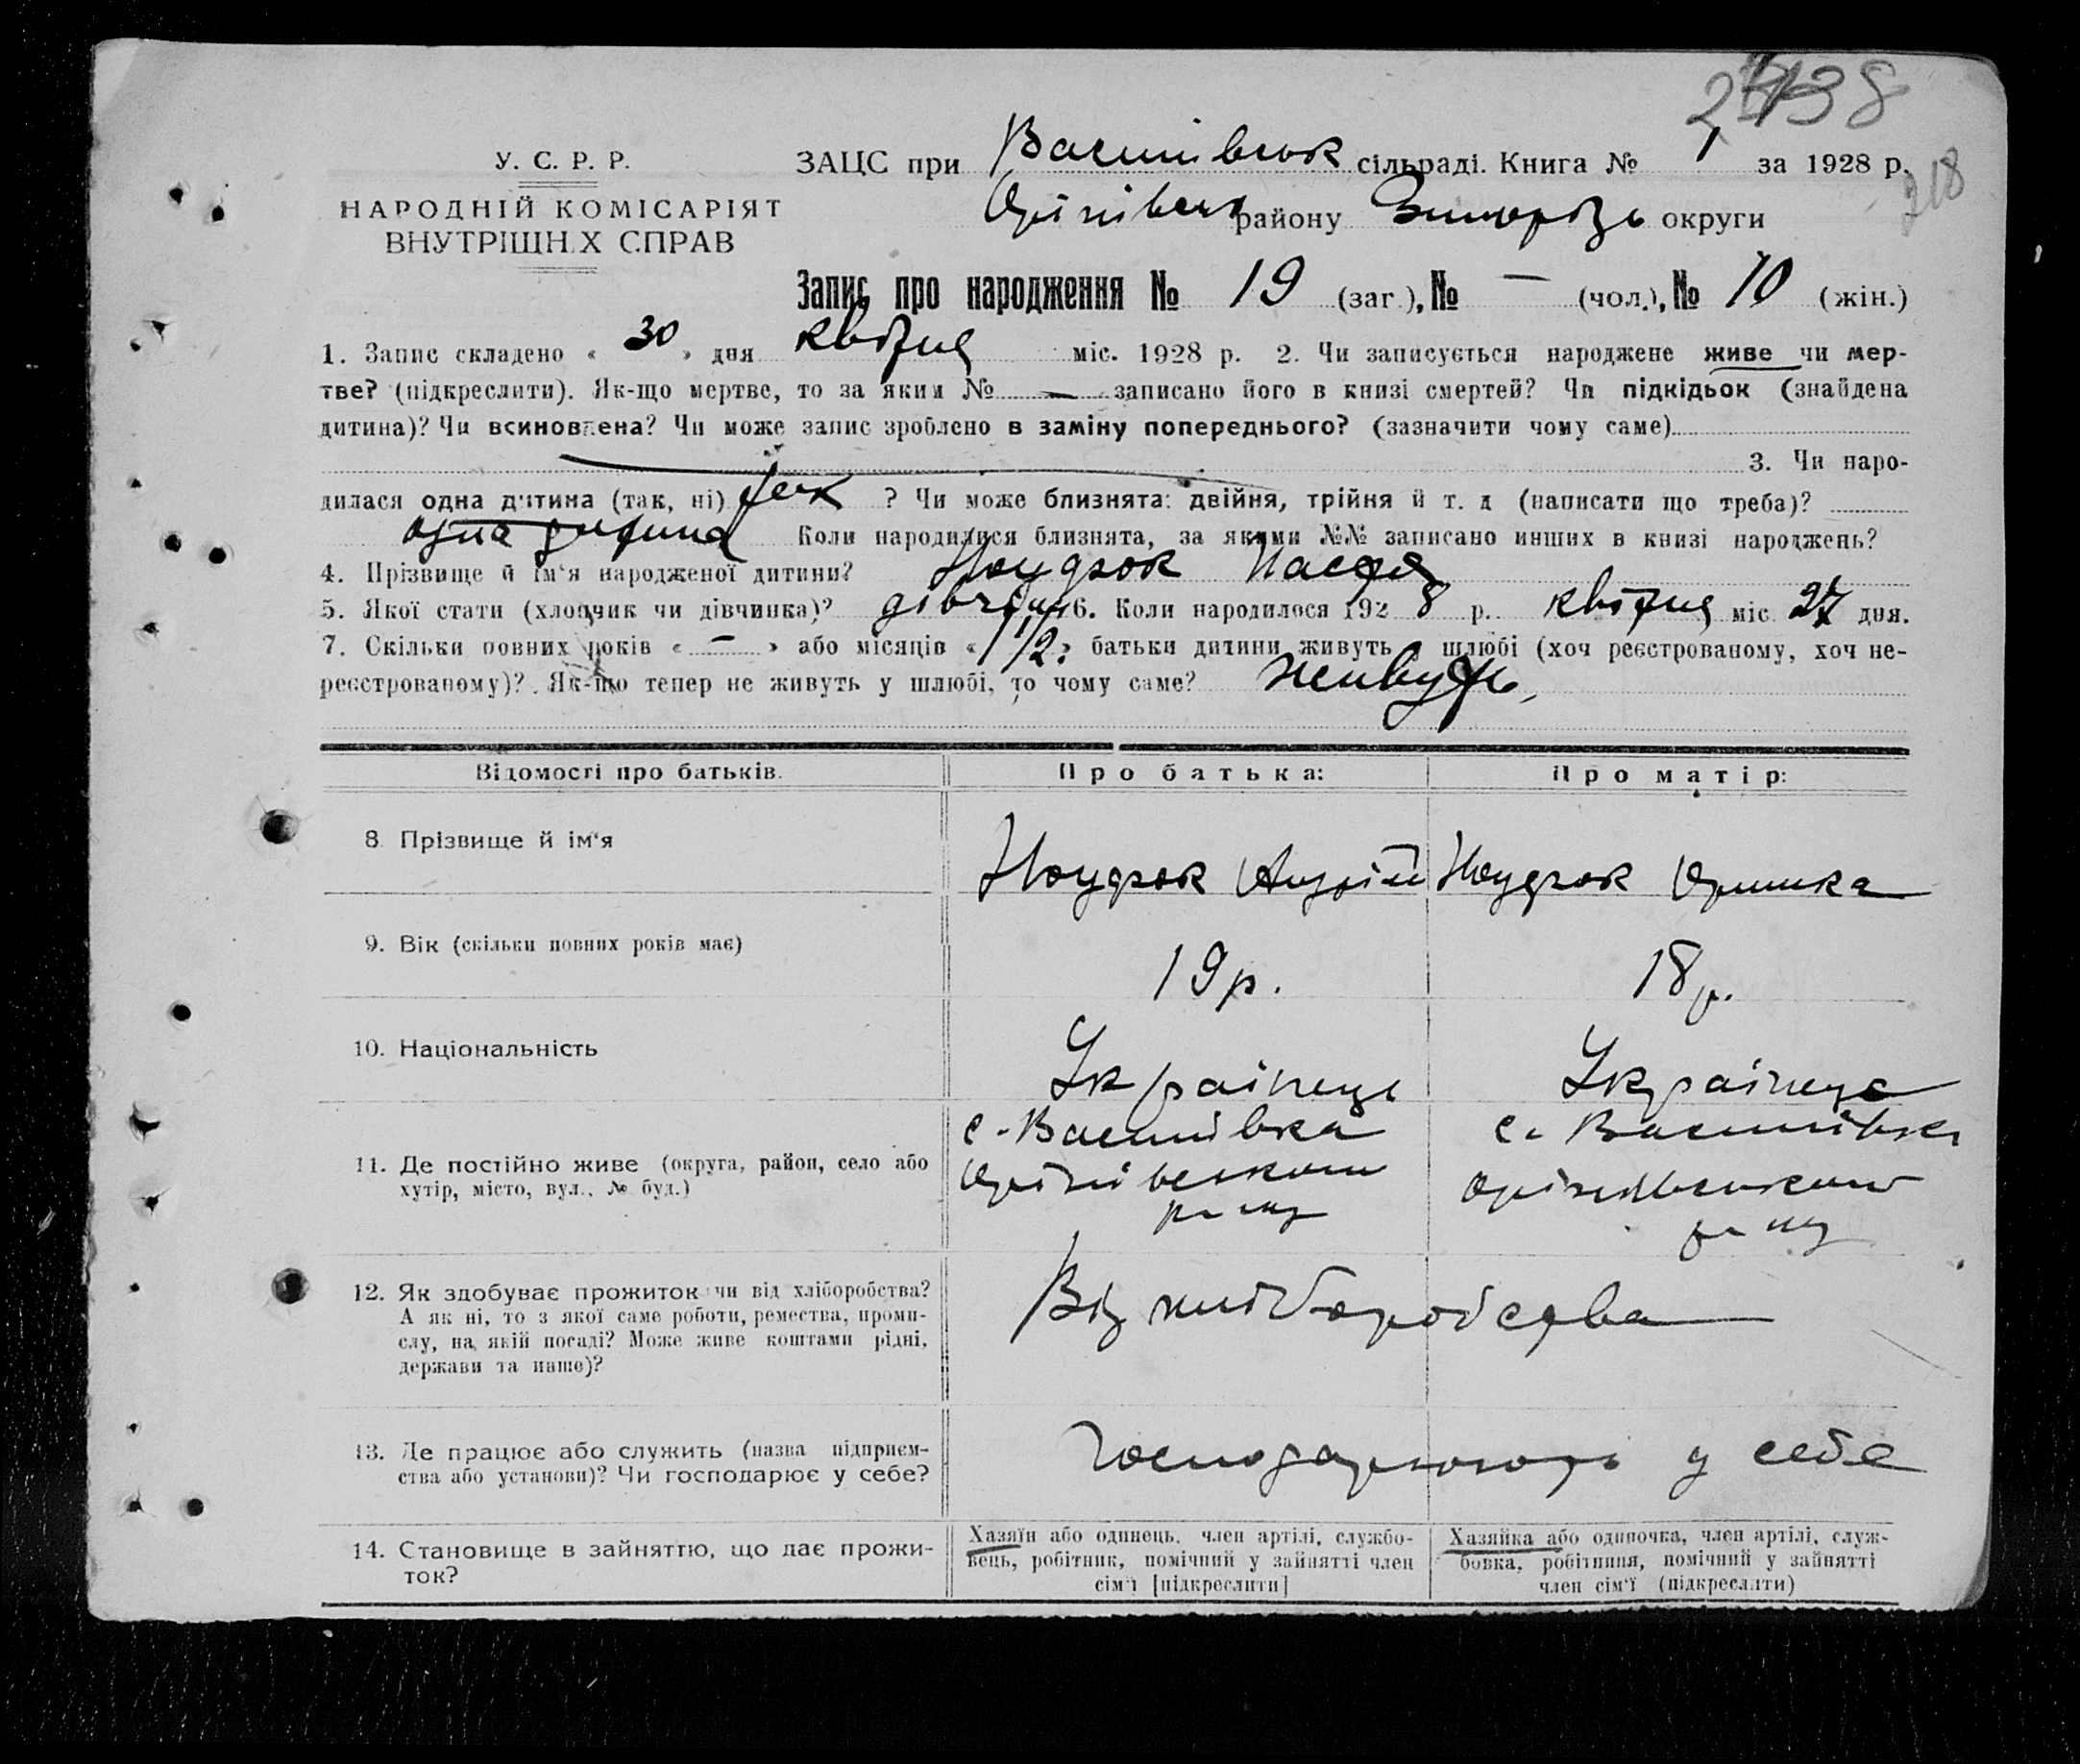 2438
218
У. С. Р. Р.
НАРОДНІЙ КОМІСАРІЯТ
ВНУТРІШНИХ СПРАВ
ЗАЦС при Василівськ сільраді. Книга № 1 за 1928 р.
Оріхівськ району Запорізь округи
Запис про народження № 19 (заг.), № — (чол.), № 10 (жін.)
1. Запис складено « 30 » дня квітня міс. 1928 р. 2. Чи записується народжене живе чи мер-
тве? (підкреслити). Як-що мертве, то за яким № — записано його в книзі смертей? Чи підкідьок (знайдена
дитина)? Чи всиновлена? Чи може запис зроблено в заміну попереднього? (зазначити чому саме)
3. Чи наро-
дилася одна дитина (так, ні) так ? Чи може близнята: двійня, трійня й т. д (написати що треба)?
одна дитина Коли народилися близнята, за якими №№ записано инших в книзі народжень?
4. Прізвище й ім'я народженої дитини? Настя
5. Якої стати (хлопчик чи дівчинка)? дівчин 6. Коли народилося 1928 р. квітня міс. 27 дня.
7. Скільки повних років « — » або місяців « 1/2 » батьки дитини живуть у шлюбі (хоч реєстрованому, хоч не-
реєстрованому)? Як-що тепер не живуть у шлюбі, то чому саме? живуть
Відомості про батьків. Про батька: Про матір:
8. Прізвище й ім'я Андрій Оришка
9. Вік (скільки повних років має) 19 р. 18 р.
10. Національність Українець Українка
11. Де постійно живе (округа, район, село або с. Василівка с. Василівка
хутір, місто, вул., № буд.) Оріхівського Оріхівського
р-ну р-ну
12. Як здобуває прожиток чи від хліборобства? Від хліборобства
А як ні, то з якої саме роботи, ремества, проми-
слу, на якій посаді? Може живе коштами рідні,
держави та инше)?
13. Де працює або служить (назва підприєм- Господарюють у себе
ства або установи)? Чи господарює у себе?
14. Становище в зайняттю, що дає прожи-
ток?
Хазяїн або одинець, член артілі, службо-
вець, робітник, помічний у зайнятті член
сім'ї [підкреслити]
Хазяйка або одиночка, член артілі, служ-
бовка, робітниця, помічний у зайнятті
член сім'ї (підкреслити)